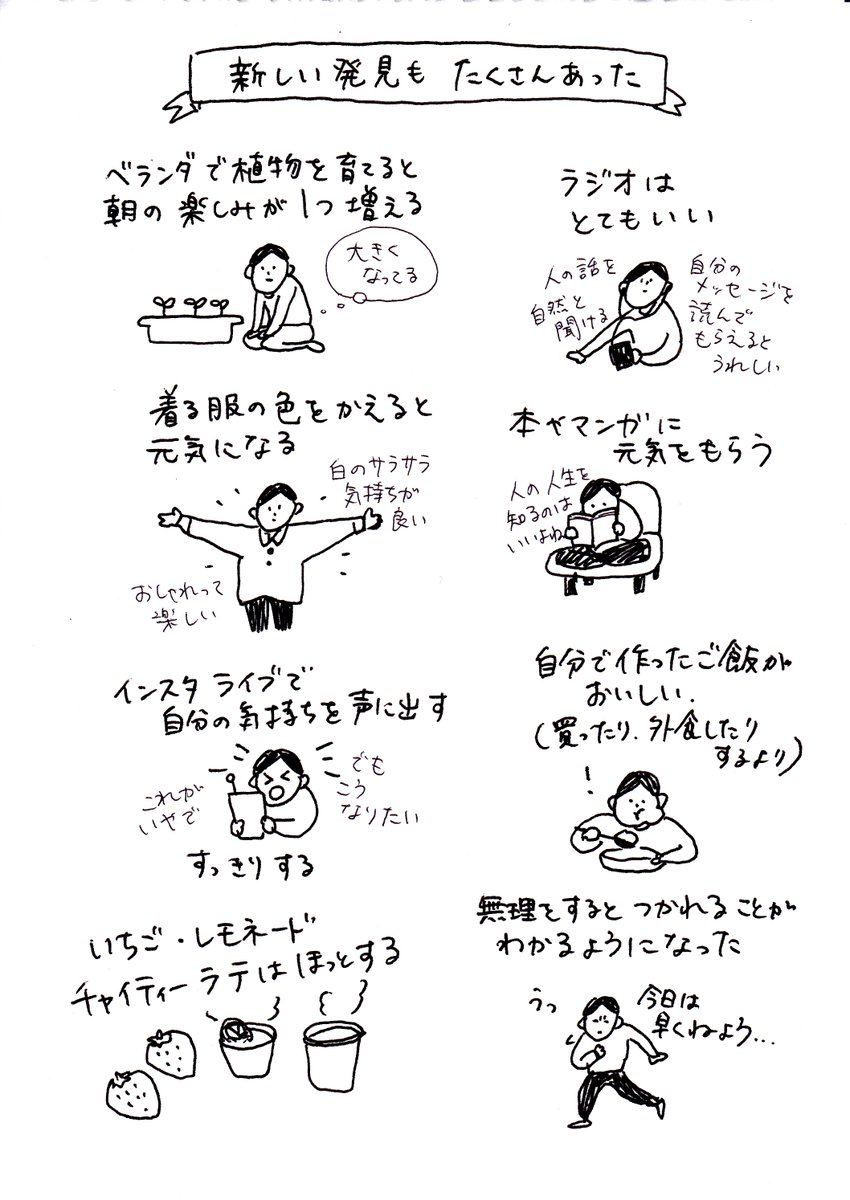 新しい発見も たくさんあった
ベランダで植物を育てると
朝の楽しみが1つ増える
大きく
なってる
ラジオは
とてもいい
人の話を
自然と
聞ける
自分の
メッセージを
読んで
もらえると
うれしい
着る服の色をかえると
元気になる
白のサラサラ
気持ちが
良い
おしゃれって
楽しい
本やマンガに
元気をもらう
人の人生を
知るのは
いいよね
インスタライブで
自分の気持ちを声に出す
これが
いやで
でも
こう
なりたい
すっきりする
自分で作ったご飯が
おいしい.
(買ったり、外食したり
するより)
!
いちご・レモネード
チャイティーラテはほっとする
無理をするとつかれることが
わかるようになった
うっ
今日は
早くねよう...